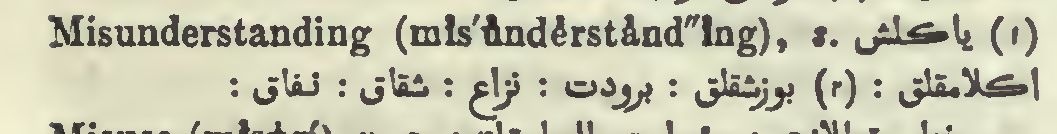 Misunderstanding (mĭs′ŭndẻrstănd″ĭng), s. (١) ياكلش
اكلامقلق : (٢) بوزشقلق : برودت : نزاع : شقاق : نفاق :